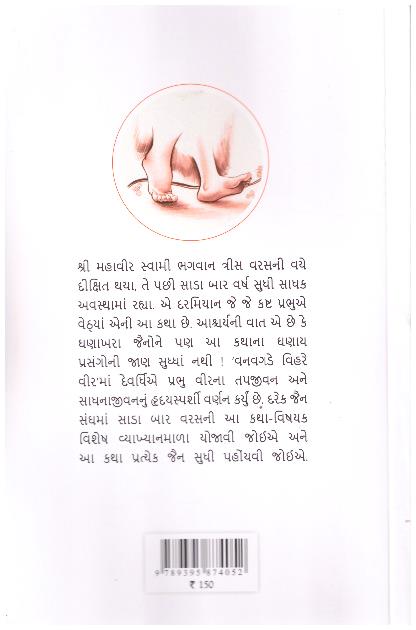 શ્રી મહાવીર સ્વામી ભગવાન ત્રીસ વરસની વયે
દીક્ષિત થયા, તે પછી સાડા બાર વર્ષ સુધી સાધક
અવસ્થામાં રહ્યા. એ દરમિયાન જે જે કષ્ટ પ્રભુએ
વેઠ્યાં એની આ કથા છે. આશ્ચર્યની વાત એ છે કે
ઘણાખરા જૈનોને પણ આ કથાના ઘણાય
પ્રસંગોની જાણ સુધ્ધાં નથી ! 'વનવગડે વિહરે
વીર'માં દેવર્ધિએ પ્રભુ વીરના તપજીવન અને
સાધનાજીવનનું હૃદયસ્પર્શી વર્ણન કર્યું છે. દરેક જૈન
સંઘમાં સાડા બાર વરસની આ કથા-વિષયક
વિશેષ વ્યાખ્યાનમાળા યોજાવી જોઈએ અને
આ કથા પ્રત્યેક જૈન સુધી પહોંચવી જોઈએ.
9 789395 874052
₹ 150